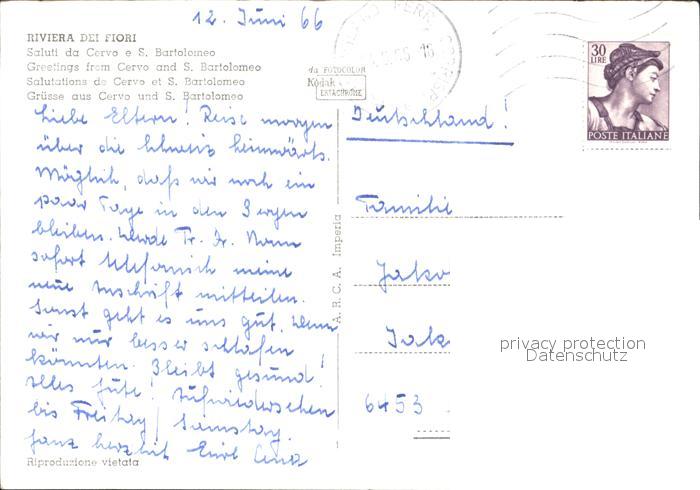 12. Juni 66
RIVIERA DEI FIORI
Saluti da Cervo e S. Bartolomeo
Greetings from Cervo and S. Bartolomeo
Salutations de Cervo et S. Bartolomeo
Grüsse aus Cervo und S. Bartolomeo
da FOTOCOLOR
Kodak
EKTACHROME
30
LIRE
POSTE ITALIANE
Liebe Eltern! Reise morgen
über die Schweiz heimwärts.
Möglich, daß wir noch ein
paar Tage in den Bergen
bleiben. Werde Fr.
sofort telefonisch meine
neue Anschrift mitteilen.
Sonst geht es uns gut. Wenn
wir nur besser schlafen
könnten. Bleibt gesund!
Alles Gute! Aufwiedersehen
bis Freitag / Samstag.
Ganz herzlich
Riproduzione vietata
A.R.C.A. Imperia
Deutschland!
Familie
Jako
Jak
6453
privacy protection
Datenschutz